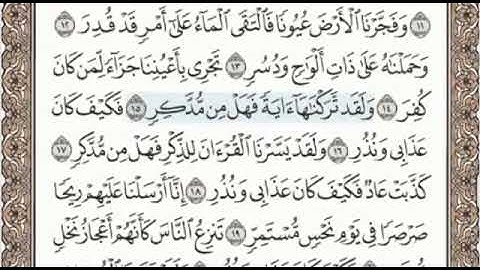 ⁝١١ وَفَجَّرْنَا ٱلْأَرْضَ عُيُونًا فَٱلْتَقَى ٱلْمَآءُ عَلَىٰٓ أَمْرٍ قَدْ قُدِرَ ١٢
وَحَمَلْنَٰهُ عَلَىٰ ذَاتِ أَلْوَٰحٍ وَدُسُرٍ ١٣ تَجْرِى بِأَعْيُنِنَا جَزَآءً لِّمَن كَانَ
كُفِرَ ١٤ وَلَقَد تَّرَكْنَٰهَآ ءَايَةً فَهَلْ مِن مُّدَّكِرٍ ١٥ فَكَيْفَ كَانَ
عَذَابِى وَنُذُرِ ١٦ وَلَقَدْ يَسَّرْنَا ٱلْقُرْءَانَ لِلذِّكْرِ فَهَلْ مِن مُّدَّكِرٍ ١٧
كَذَّبَتْ عَادٌ فَكَيْفَ كَانَ عَذَابِى وَنُذُرِ ١٨ إِنَّآ أَرْسَلْنَا عَلَيْهِمْ رِيحًا
صَرْصَرًا فِى يَوْمِ نَحْسٍ مُّسْتَمِرٍّ ١٩ تَنزِعُ ٱلنَّاسَ كَأَنَّهُمْ أَعْجَازُ نَخْلٍ